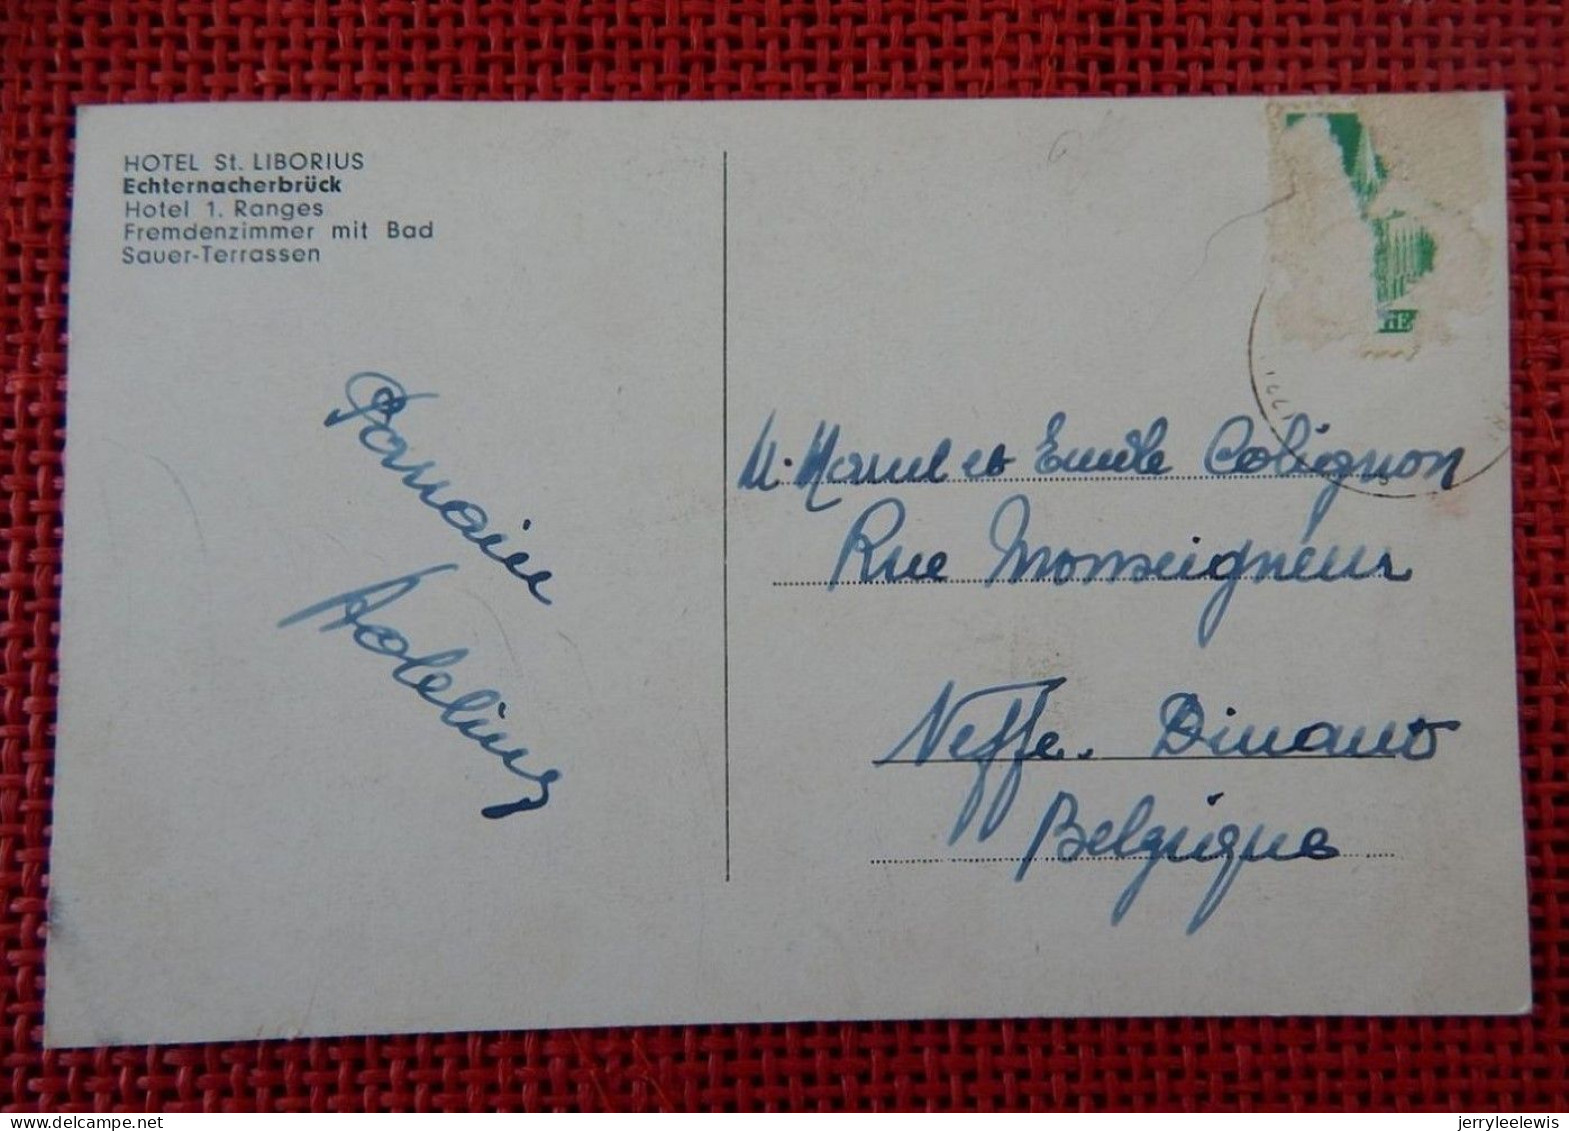 HOTEL St. LIBORIUS
Echternacherbrück
Hotel 1. Ranges
Fremdenzimmer mit Bad
Sauer-Terrassen
M. Marcel et Emile Colignon
Rue Monseigneur
Neffe. Dinant
Belgique
jerryleelewis